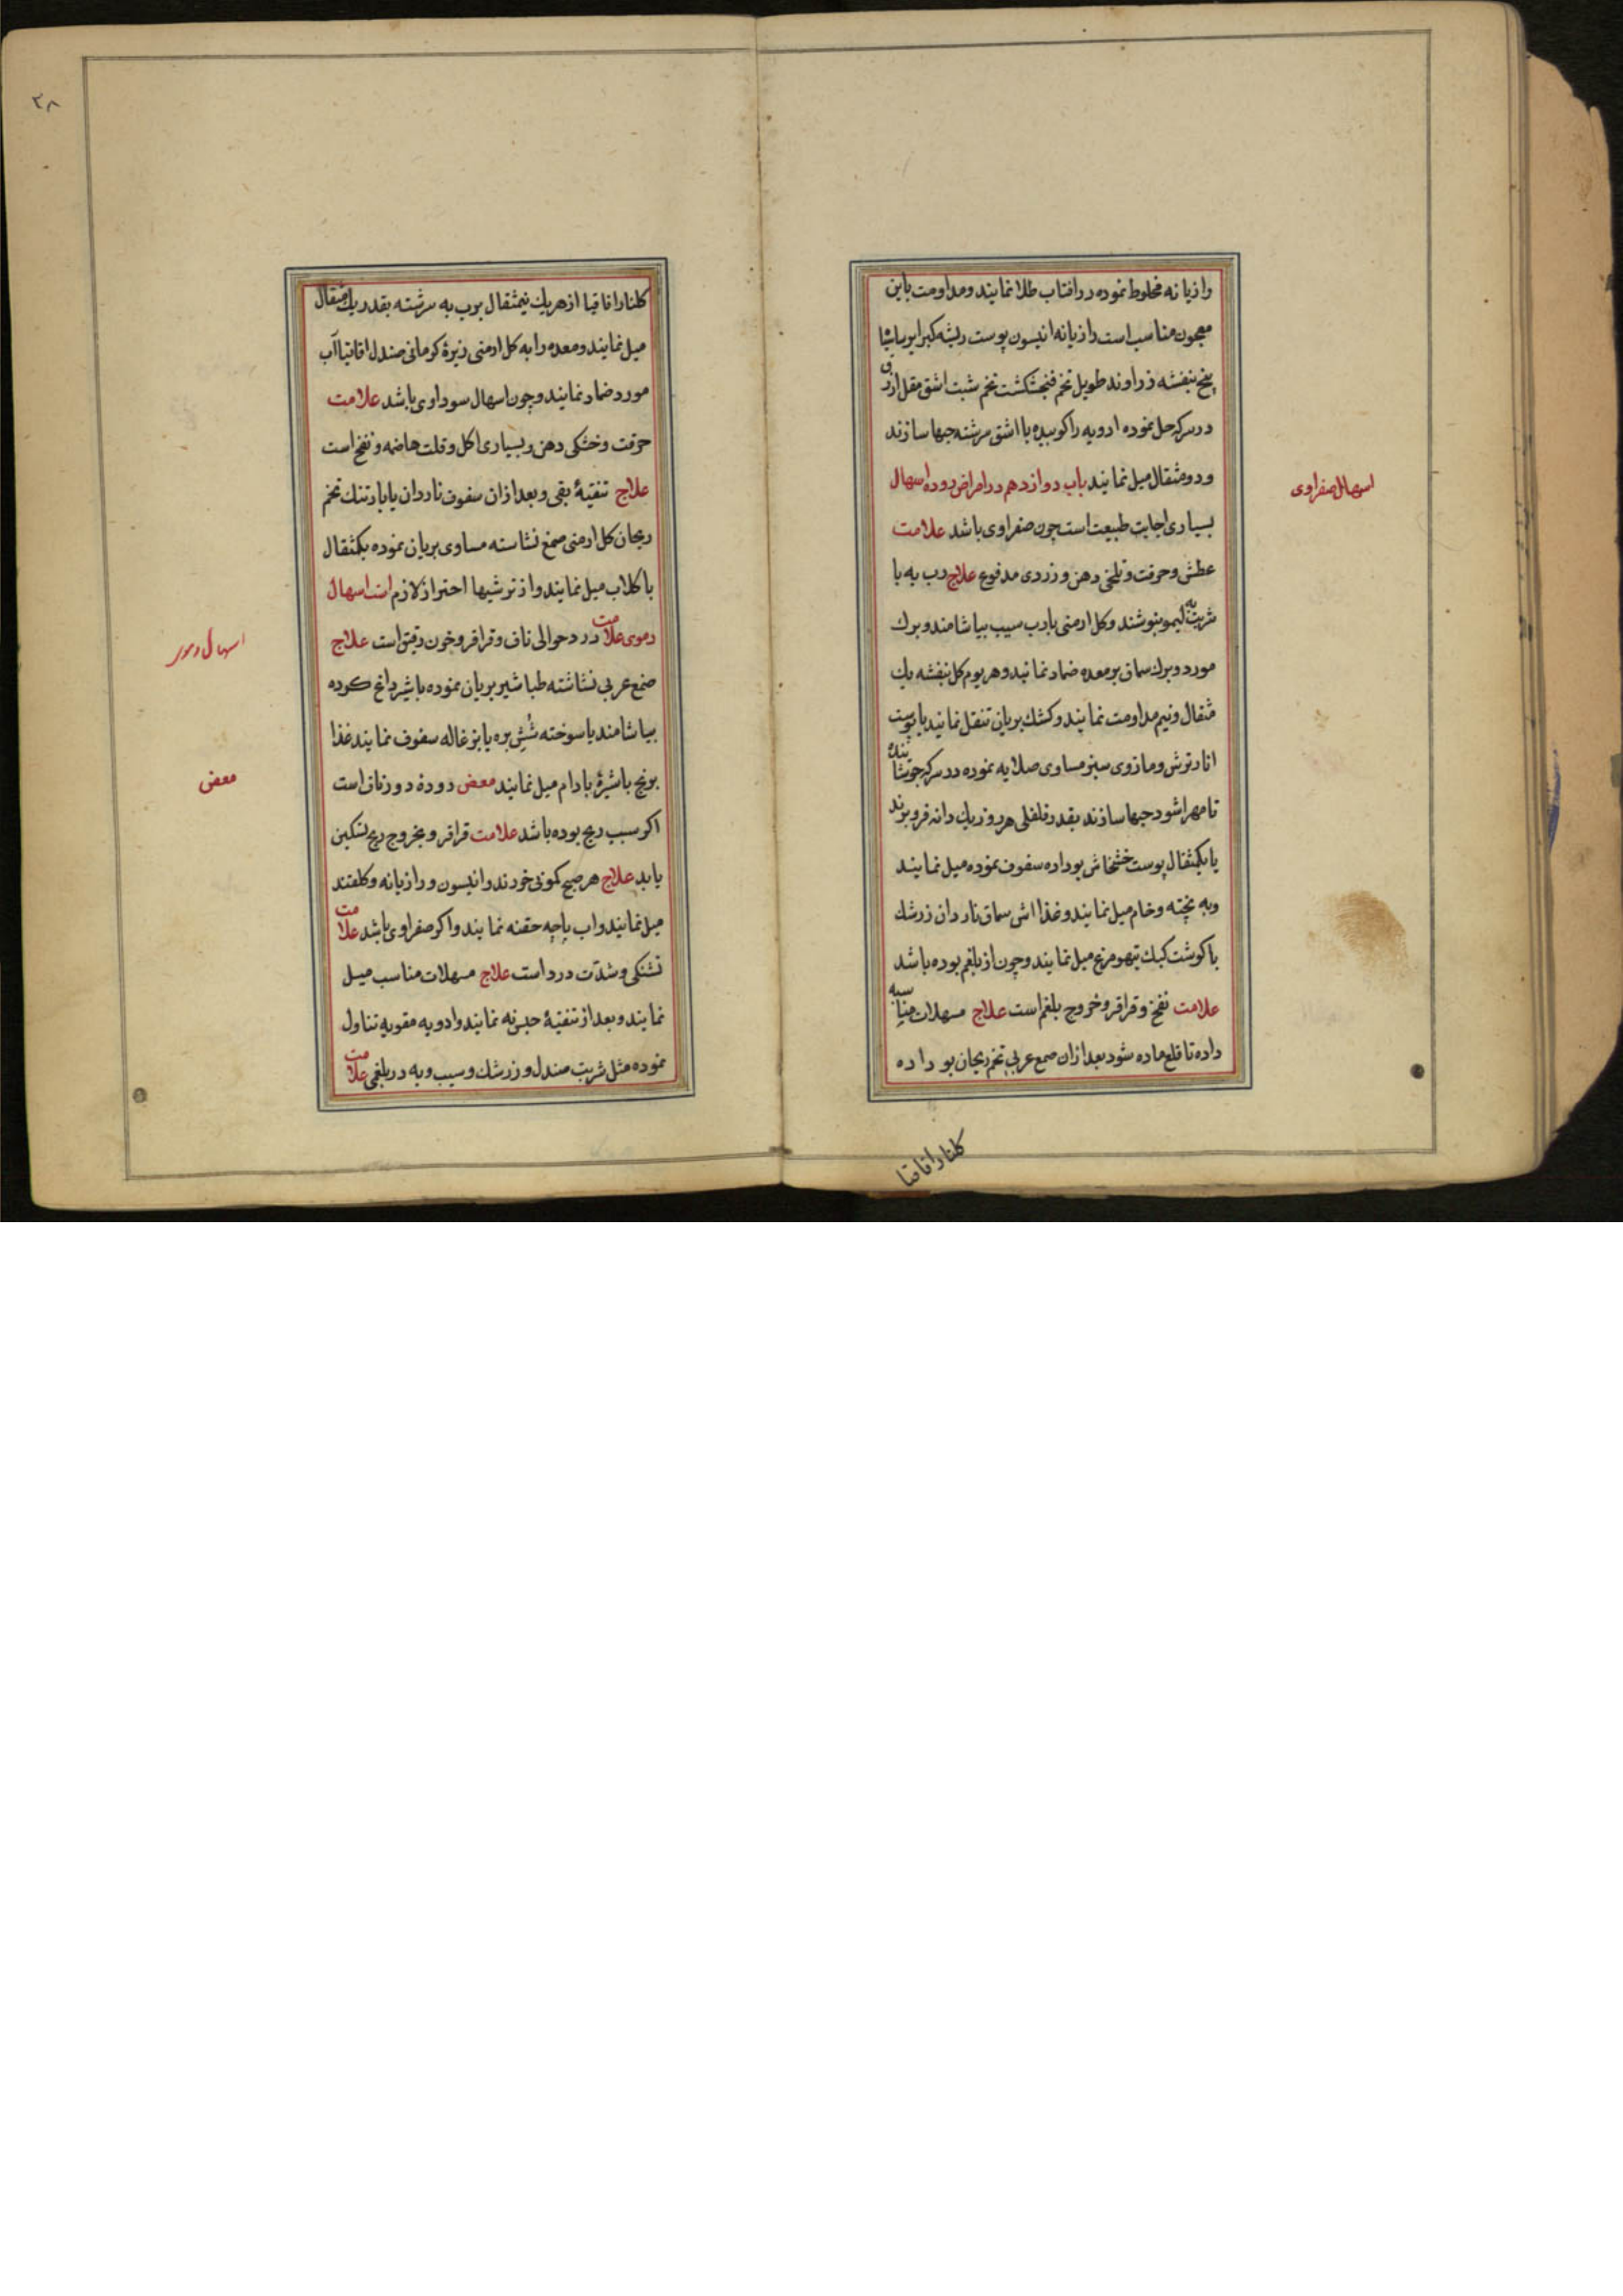 رازیانه مخلوط نموده در افتاب طلا نمایند و مداومت باین
معجون مناسب است رازیانه انیسون پوست ریشه کبر ایرسا
بیخ بنفشه زراوند طویل تخم فنجنکشت تخم شبت اشق مقل ازرق
در سرکه حل نموده ادویه را کوبیده با اشق سرشته حبها سازند
و دو مثقال میل نمایند باب دوازدهم در امراض روده اسهال
بسیاری اجابت طبیعت است چون صفراوی باشد علامت
عطش و حرقت و تلخی دهن و زردی مدفوع علاج رب به با
شربت به لیمو بنوشند و کل ارمنی با رب سیب بیاشامند و برك
مورد و برك سماق بر معده ضماد نمانید و هر یوم کل بنفشه یك
مثقال و نیم مداومت نمایند و کشك بریان تنقل نمانید یا پوست
انار ترش و مازوی سبز مساوی صلایه نموده در سرکه جوشانیده
تا مهرا شود حبها سازند بقدر فلفلی هر روز یك دانه فرو برند
یا یکمثقال پوست خشخاش بو داده سفوف نموده میل نمایند
و به پخته و خام میل نمایند و غذا اش سماق ناردان زرشك
با کوشت کبك تیهو مرغ میل نمایند و چون از بلغم بوده باشد
علامت نفخ و قراقر و خروج بلغم است علاج مسهلات مناسبه
داده تا قلع ماده شود بعد ازان صمغ عربی تخم ریحان بو داده
کلنار اقاقیا
اسهال صفراوی
۲۸
کلنار اقاقیا از هریك نیمثقال برب به سرشته بقدر یك مثقال
میل نمایند و معده را به کل ارمنی زیرهٔ کرمانی صندل اقاقیا آب
مورد ضماد نمایند و چون اسهال سوداوی باشد علامت
حرقت و خشکی دهن و بسیاری اکل و قلت هاضمه و نفخ است
علاج تنقیهٔ بقی و بعد ازان سفوف ناردان یا بارتنك تخم
ریحان کل ارمنی صمغ نشاسته مساوی بریان نموده یکمثقال
با کلاب میل نمایند و از ترشیها احتراز لازم است اسهال
دموی علامت درد حوالی ناف و قراقر و خون رقیق است علاج
صمغ عربی نشاشته طباشیر بریان نموده با شیر داغ کرده
بیاشامند یا سوخته شُش بره یا بزغاله سفوف نمایند غذا
برنج با شیرهٔ بادام میل نمایند مغص رودهٔ دور ناف است
اکر سبب ریح بوده باشد علامت قراقر و بخروج ریح تسکین
یابد علاج هر صبح کمونی خورند و انیسون و رازیانه و کلقند
میل نمانید و اب پاچه حقنه نمایند و اکر صفراوی باشد علامت
تشنکی و شدّت درد است علاج مسهلات مناسب میل
نمایند و بعد از تنقیهٔ حبس نه نمایند و ادویه مقویه تناول
نموده مثل شربت صندل و زرشك و سیب و به در بلغمی علامت
اسهال دموی
مغص